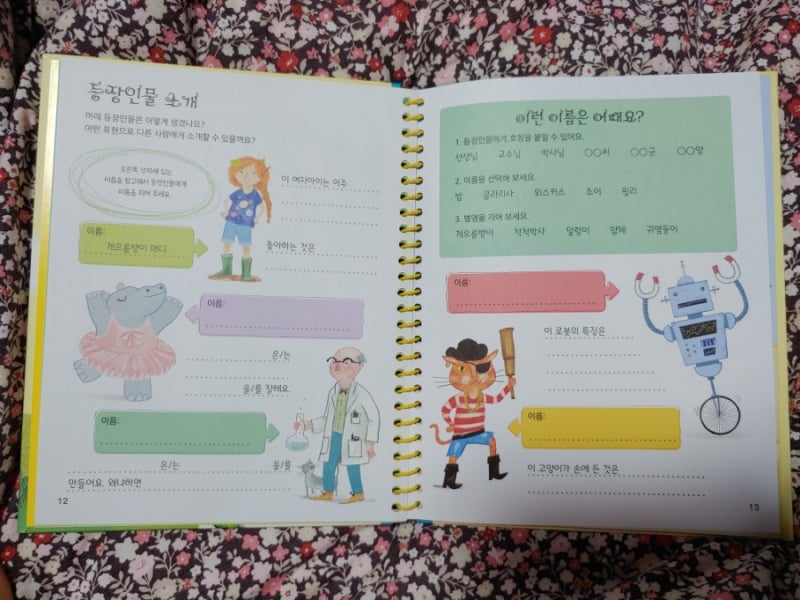 등장인물 소개
아래 등장인물은 어떻게 생겼나요?
어떤 표현으로 다른 사람에게 소개할 수 있을까요?
오른쪽 상자에 있는
이름을 참고해서 등장인물에게
이름을 지어 주세요.
이 여자아이는 아주
이름:
게으름뱅이 매디
좋아하는 것은
이름:
은/는
을/를 잘해요.
이름:
은/는 을/를
만들어요. 왜냐하면
12
이런 이름은 어때요?
1. 등장인물에게 호칭을 붙일 수 있어요.
선생님 교수님 박사님 ○○씨 ○○군 ○○양
2. 이름을 선택해 보세요.
밥 클라리사 위스커스 조이 윌리
3. 별명을 지어 보세요.
게으름뱅이 척척박사 덜렁이 얌체 귀염둥이
이름:
이 로봇의 특징은
이름:
이 고양이가 손에 든 것은
13